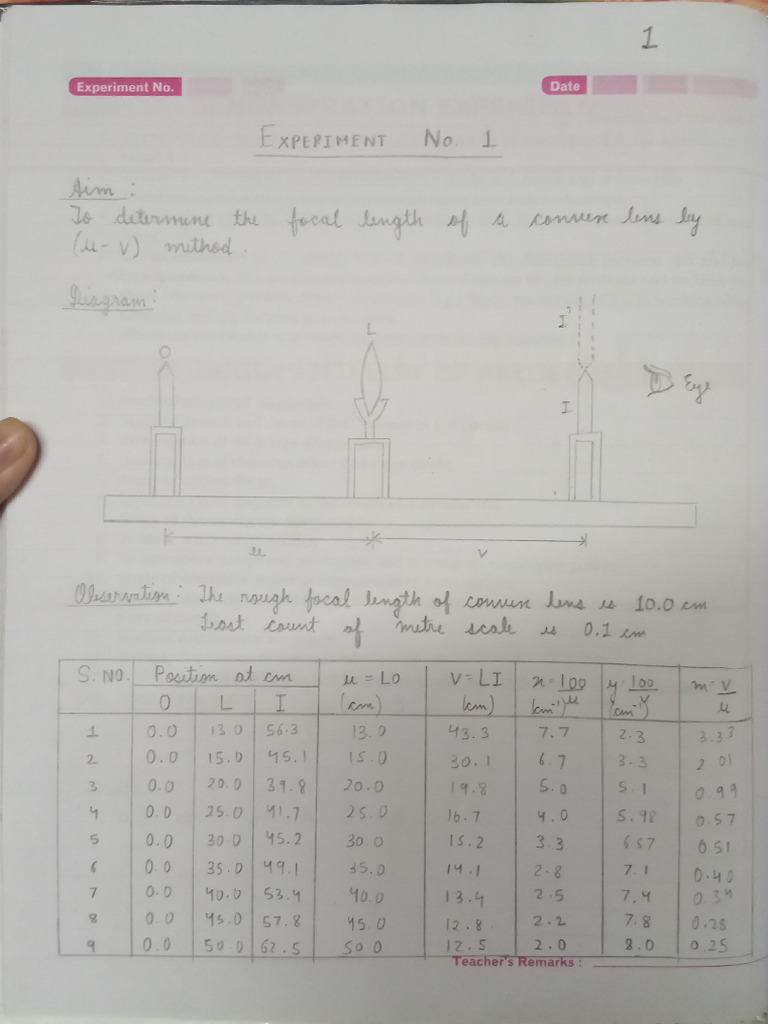 1
Experiment No. Date
EXPERIMENT No. 1
Aim :
To determine the focal length of a convex lens by
(u-v) method.
Diagram :
O L I'
I Eye
u v
Observation : The rough focal length of convex lens is 10.0 cm
Least count of metre scale is 0.1 cm
S. NO. Position at cm u = LO V = LI x = 100/u y = 100/v m = v/u
O L I (cm) (cm) (cm⁻¹) (cm⁻¹)
1 0.0 13.0 56.3 13.0 43.3 7.7 2.3 3.33
2 0.0 15.0 45.1 15.0 30.1 6.7 3.3 2.01
3 0.0 20.0 39.8 20.0 19.8 5.0 5.1 0.99
4 0.0 25.0 41.7 25.0 16.7 4.0 5.98 0.57
5 0.0 30.0 45.2 30.0 15.2 3.3 6.57 0.51
6 0.0 35.0 49.1 35.0 14.1 2.8 7.1 0.40
7 0.0 40.0 53.4 40.0 13.4 2.5 7.4 0.34
8 0.0 45.0 57.8 45.0 12.8 2.2 7.8 0.28
9 0.0 50.0 62.5 50.0 12.5 2.0 8.0 0.25
Teacher's Remarks :